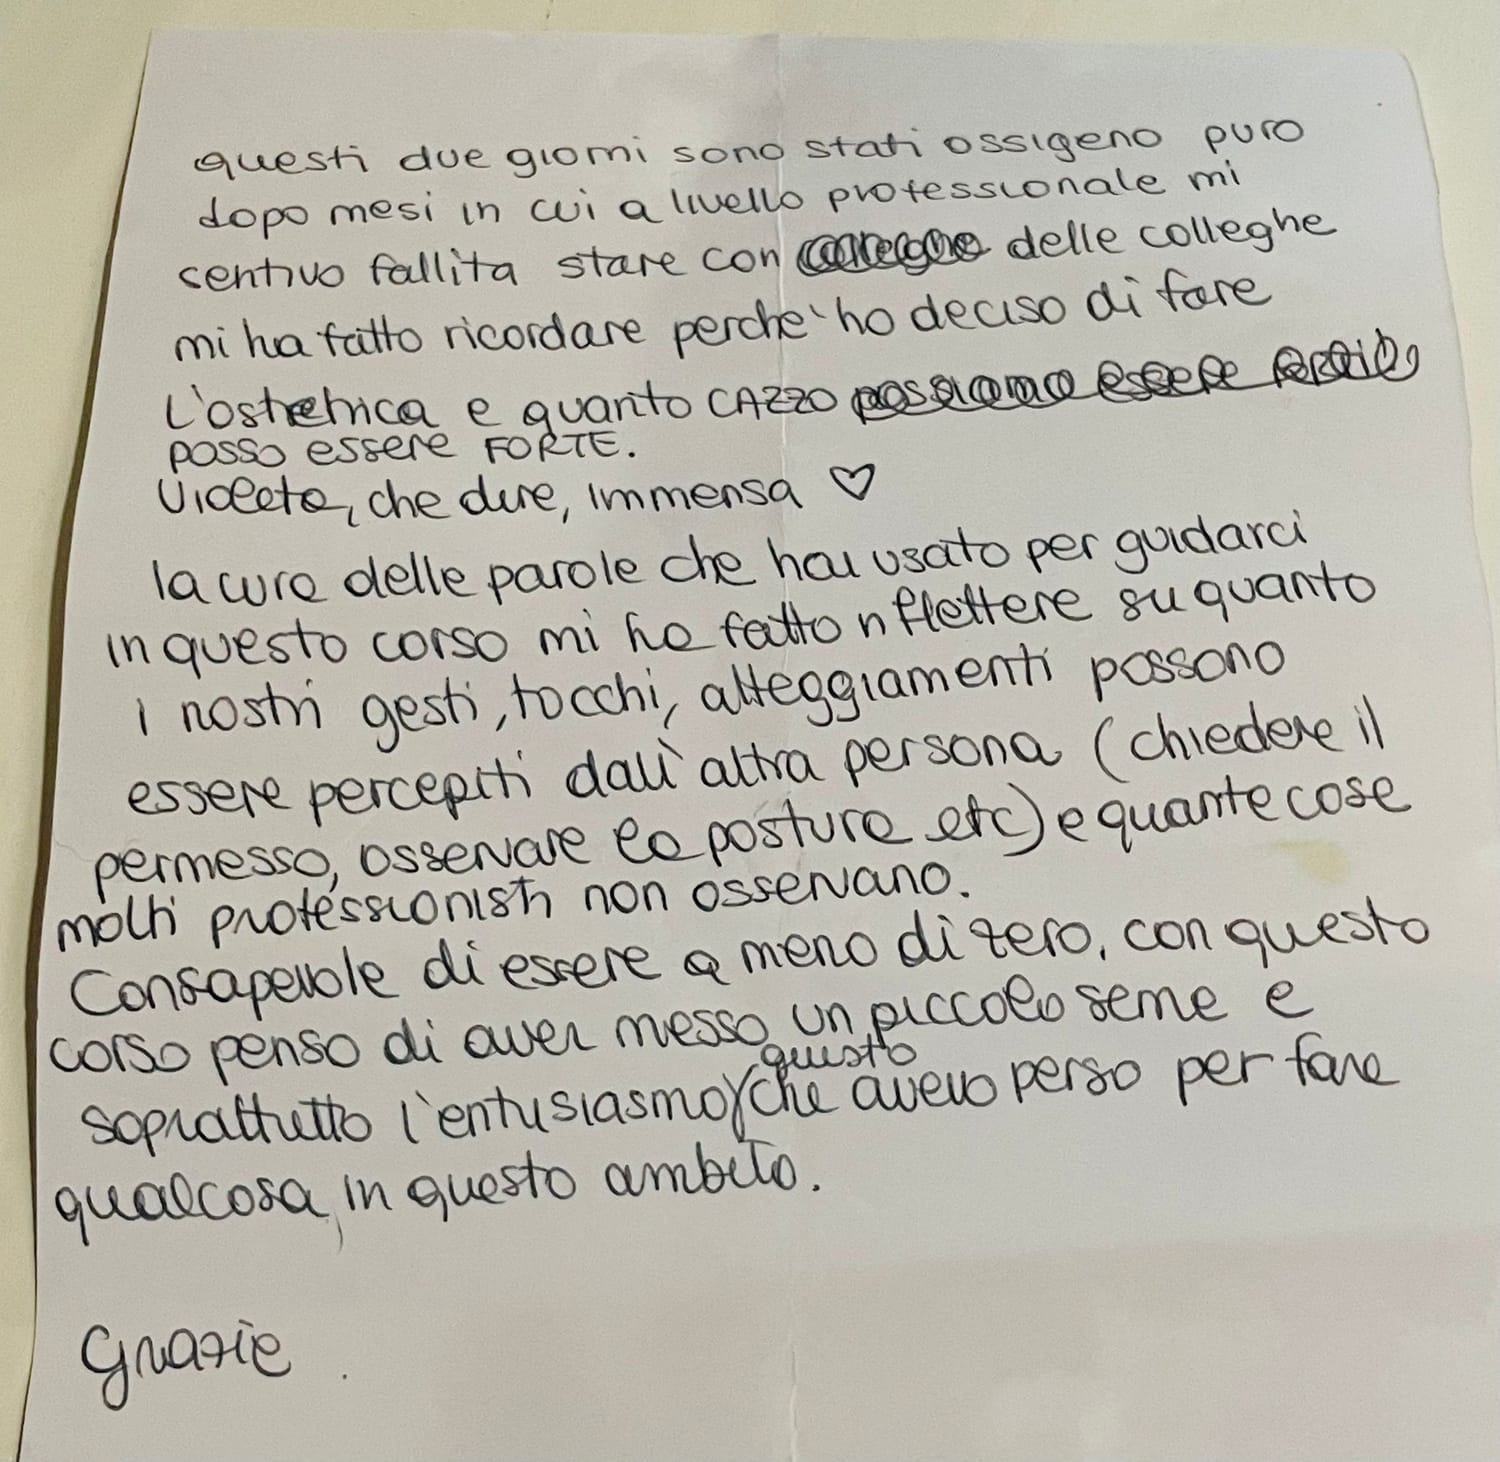 questi due giorni sono stati ossigeno puro
dopo mesi in cui a livello professionale mi
sentivo fallita stare con delle colleghe
mi ha fatto ricordare perche' ho deciso di fare
L'ostetrica e quanto CAZZO
posso essere FORTE.
Violeta, che dire, immensa ♡
la cura delle parole che hai usato per guidarci
in questo corso mi ha fatto riflettere su quanto
i nostri gesti, tocchi, atteggiamenti possono
essere percepiti dall'altra persona (chiedere il
permesso, osservare la postura etc) e quante cose
molti professionisti non osservano.
Consapevole di essere a meno di zero, con questo
corso penso di aver messo un piccolo seme e
questo
soprattutto l'entusiasmo che avevo perso per fare
qualcosa in questo ambito.
Grazie.